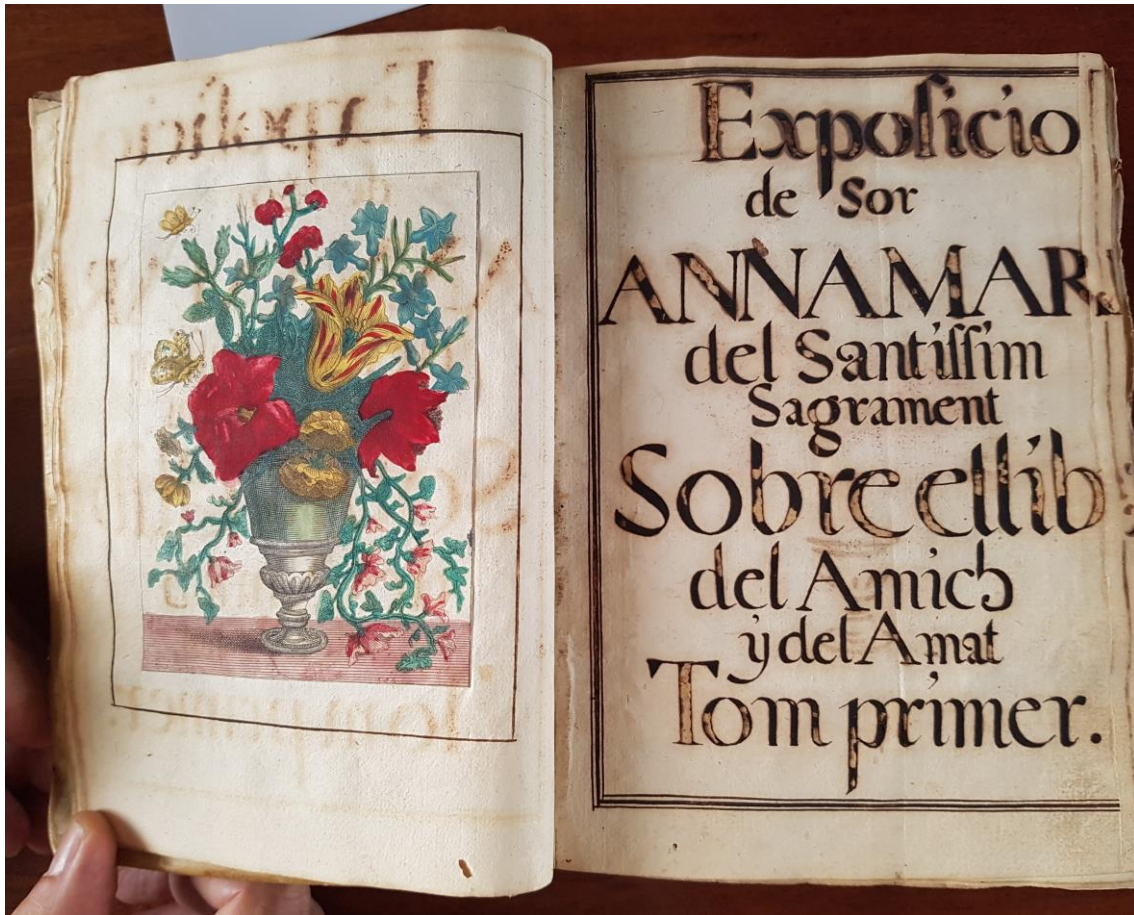 Expoſicio
de Sor
ANNAMAR
del Santiſſim
Sagrament
Sobre ellib
del Amich
y del Amat
Tom primer.